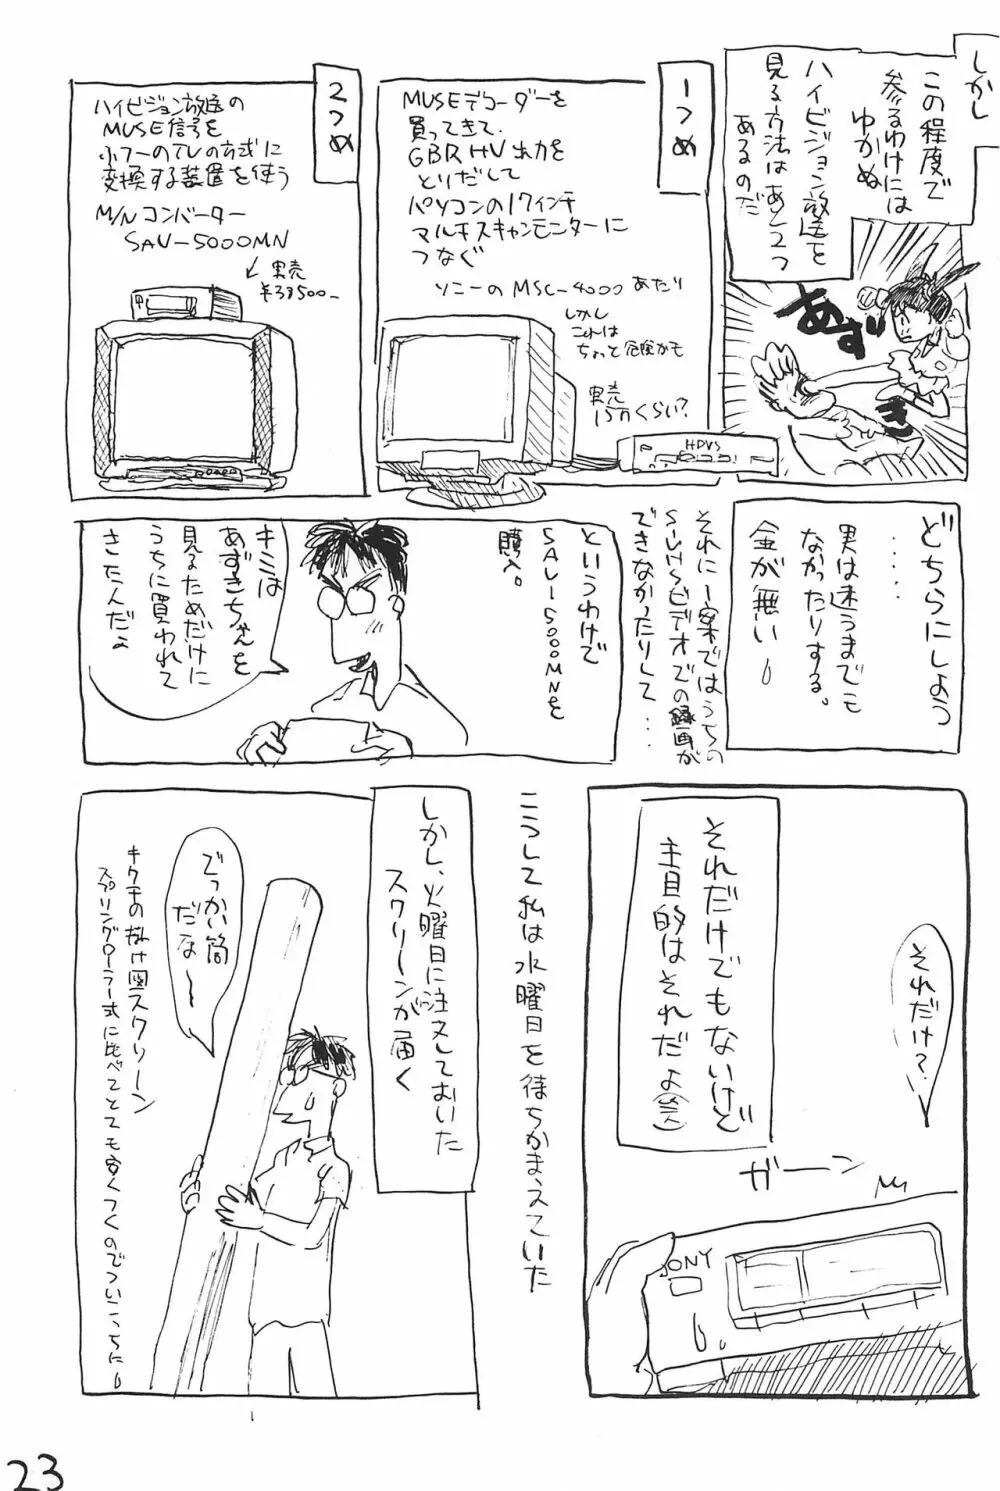 しかし
この程度で
参るわけには
ゆかぬ
ハイビジョン放送を
見る方法はあと2つ
あるのだ
あず
き
1つめ
MUSEデコーダーを
買ってきて、
GBR HV出力を
とりだして
パソコンの17インチ
マルチスキャンモニターに
つなぐ
ソニーのMSC-4000あたり
しかし
これは
ちょっと危険かも
実売
15万くらい?
HDVS
2つめ
ハイビジョン放送の
MUSE信号を
ふつーのTVの方式に
変換する装置を使う
M/Nコンバーター
SAV-5000MN
実売
¥38500-
どちらにしよう
・・・・・
男は迷うまでも
なかったりする。
金が無い
それに1案ではうちの
S-VHSビデオでの録画が
できなかったりして・・・
というわけで
SAV-5000MNを
購入。
キミは
あずきちゃんを
見るためだけに
うちに買われて
きたんだよ
それだけ?
それだけでもないけど
主目的はそれだよ(笑)
ガーン
SONY
こうして私は水曜日を待ちかまえていた
しかし、火曜日に注文しておいた
スクリーンが届く
でっかい筒
だな〜
キクチの掛け図スクリーン
スプリングローラー式に比べてとても安くつくのでついこっちに
23